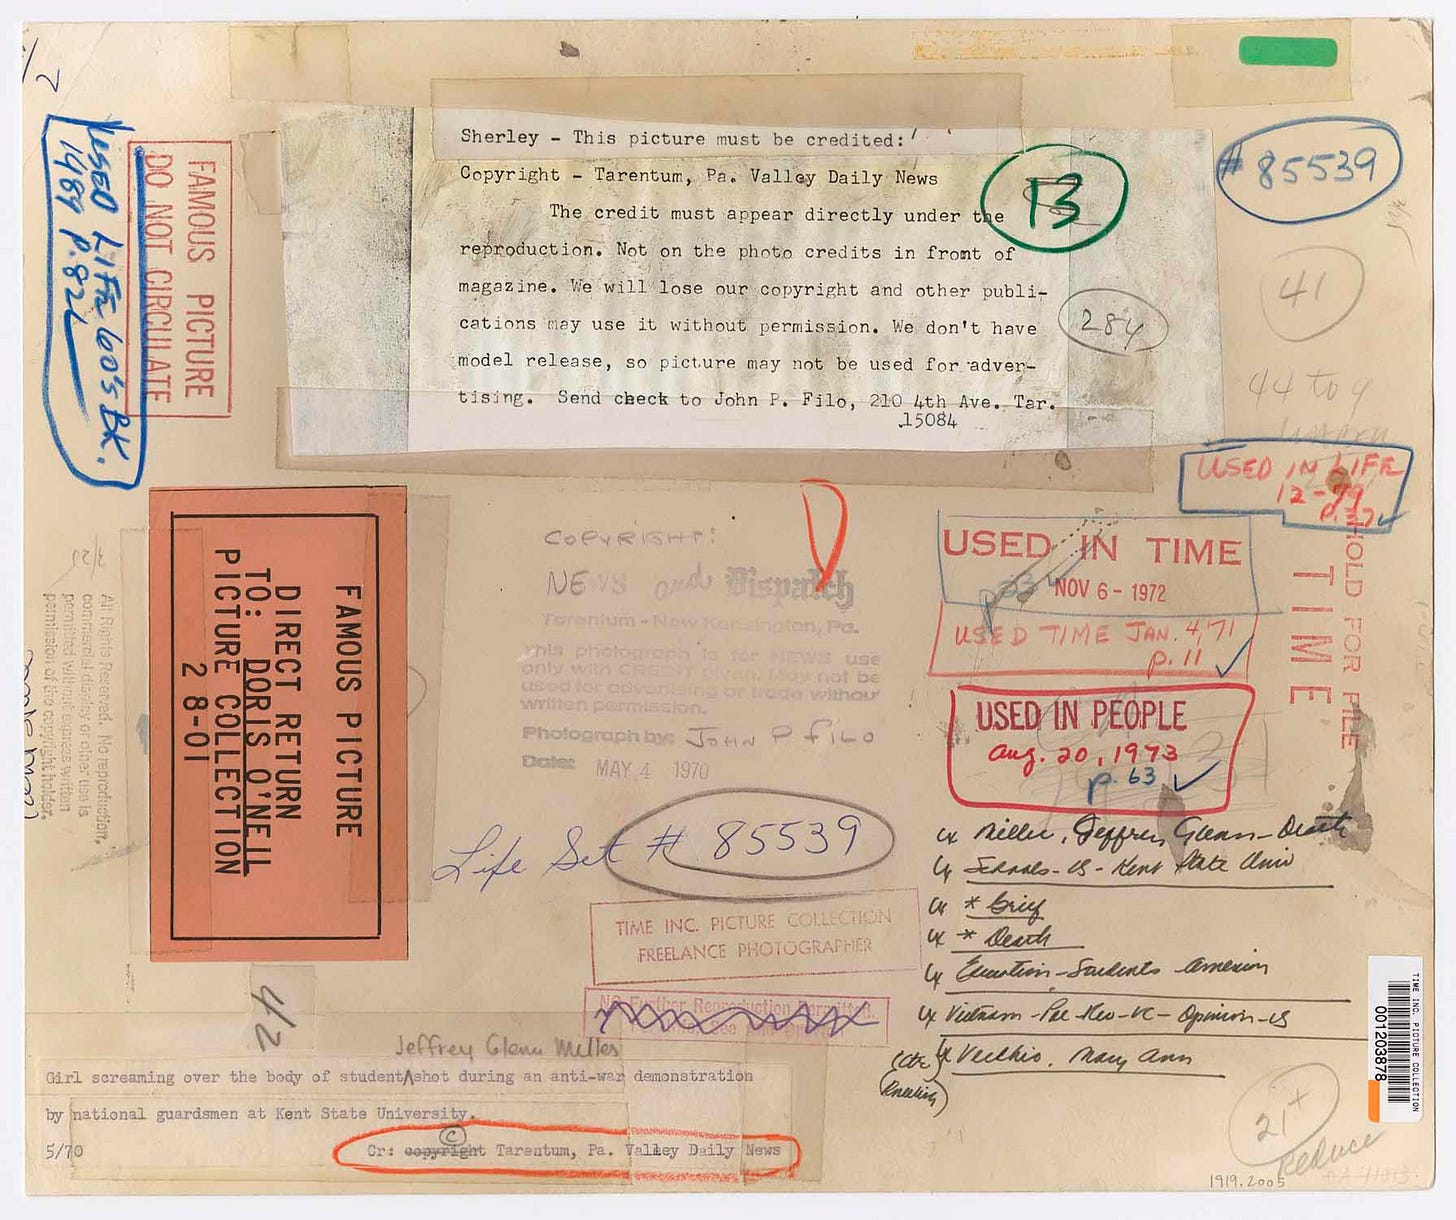 # 85539
13
Sherley - This picture must be credited:
Copyright - Tarentum, Pa. Valley Daily News
The credit must appear directly under the
reproduction. Not on the photo credits in fromt of
magazine. We will lose our copyright and other publi-
cations may use it without permission. We don't have
model release, so picture may not be used for adver-
tising. Send check to John P. Filo, 210 4th Ave. Tar.
15084
284
41
44 to 9
USED LIFE 60's BK.
1989 P.82
FAMOUS PICTURE
DO NOT CIRCULATE
USED IN LIFE
12-79
P.37
HOLD FOR FILE
TIME
USED IN TIME
NOV 6 - 1972
p. 33
USED TIME JAN. 4, 71
p. 11
USED IN PEOPLE
Aug. 20, 1973
p. 63
FAMOUS PICTURE
DIRECT RETURN
TO: DORIS O'NEIL
PICTURE COLLECTION
28-01
All Rights Reserved. No reproduction,
commercial display or other use is
permitted without express written
permission of the copyright holder.
COPYRIGHT:
NEWS and Dispatch
Tarentum - New Kensington, Pa.
This photograph is for NEWS use
only with CREDIT given. May not be
used for advertising or trade without
written permission.
Photograph by: JOHN P FILO
Date: MAY 4 1970
Life Set # 85539
TIME INC. PICTURE COLLECTION
FREELANCE PHOTOGRAPHER
No Further Reproduction Permitted.
Miller, Jeffrey Glenn - Death
Schools - US - Kent State Univ
* Grief
* Death
Education - Students - American
Vietnam - Opinion - US
Vecchio, Mary Ann
(Kneeling)
42
Jeffrey Glenn Miller
Girl screaming over the body of student shot during an anti-war demonstration
by national guardsmen at Kent State University.
5/70
Cr: copyright © Tarentum, Pa. Valley Daily News
TIME INC. PICTURE COLLECTION
001203878
21+
Reduce
1919.2005